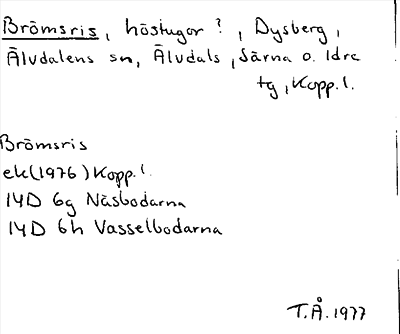 Brömsris, höstugor?, Dysberg,
Älvdalens sn, Älvdals, Särna o. Idre
tg, Kopp. l.
Brömsris
ek (1976) Kopp. l.
14D 6g Näsbodarna
14D 6h Vasselbodarna
T.Å. 1977